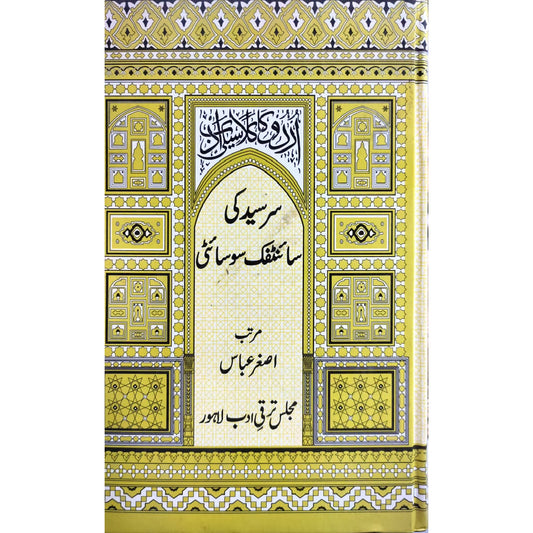 اردو کا کلاسیکی ادب
سرسید کی
سائنٹفک سوسائٹی
مرتب
اصغر عباس
مجلس ترقی ادب لاہور